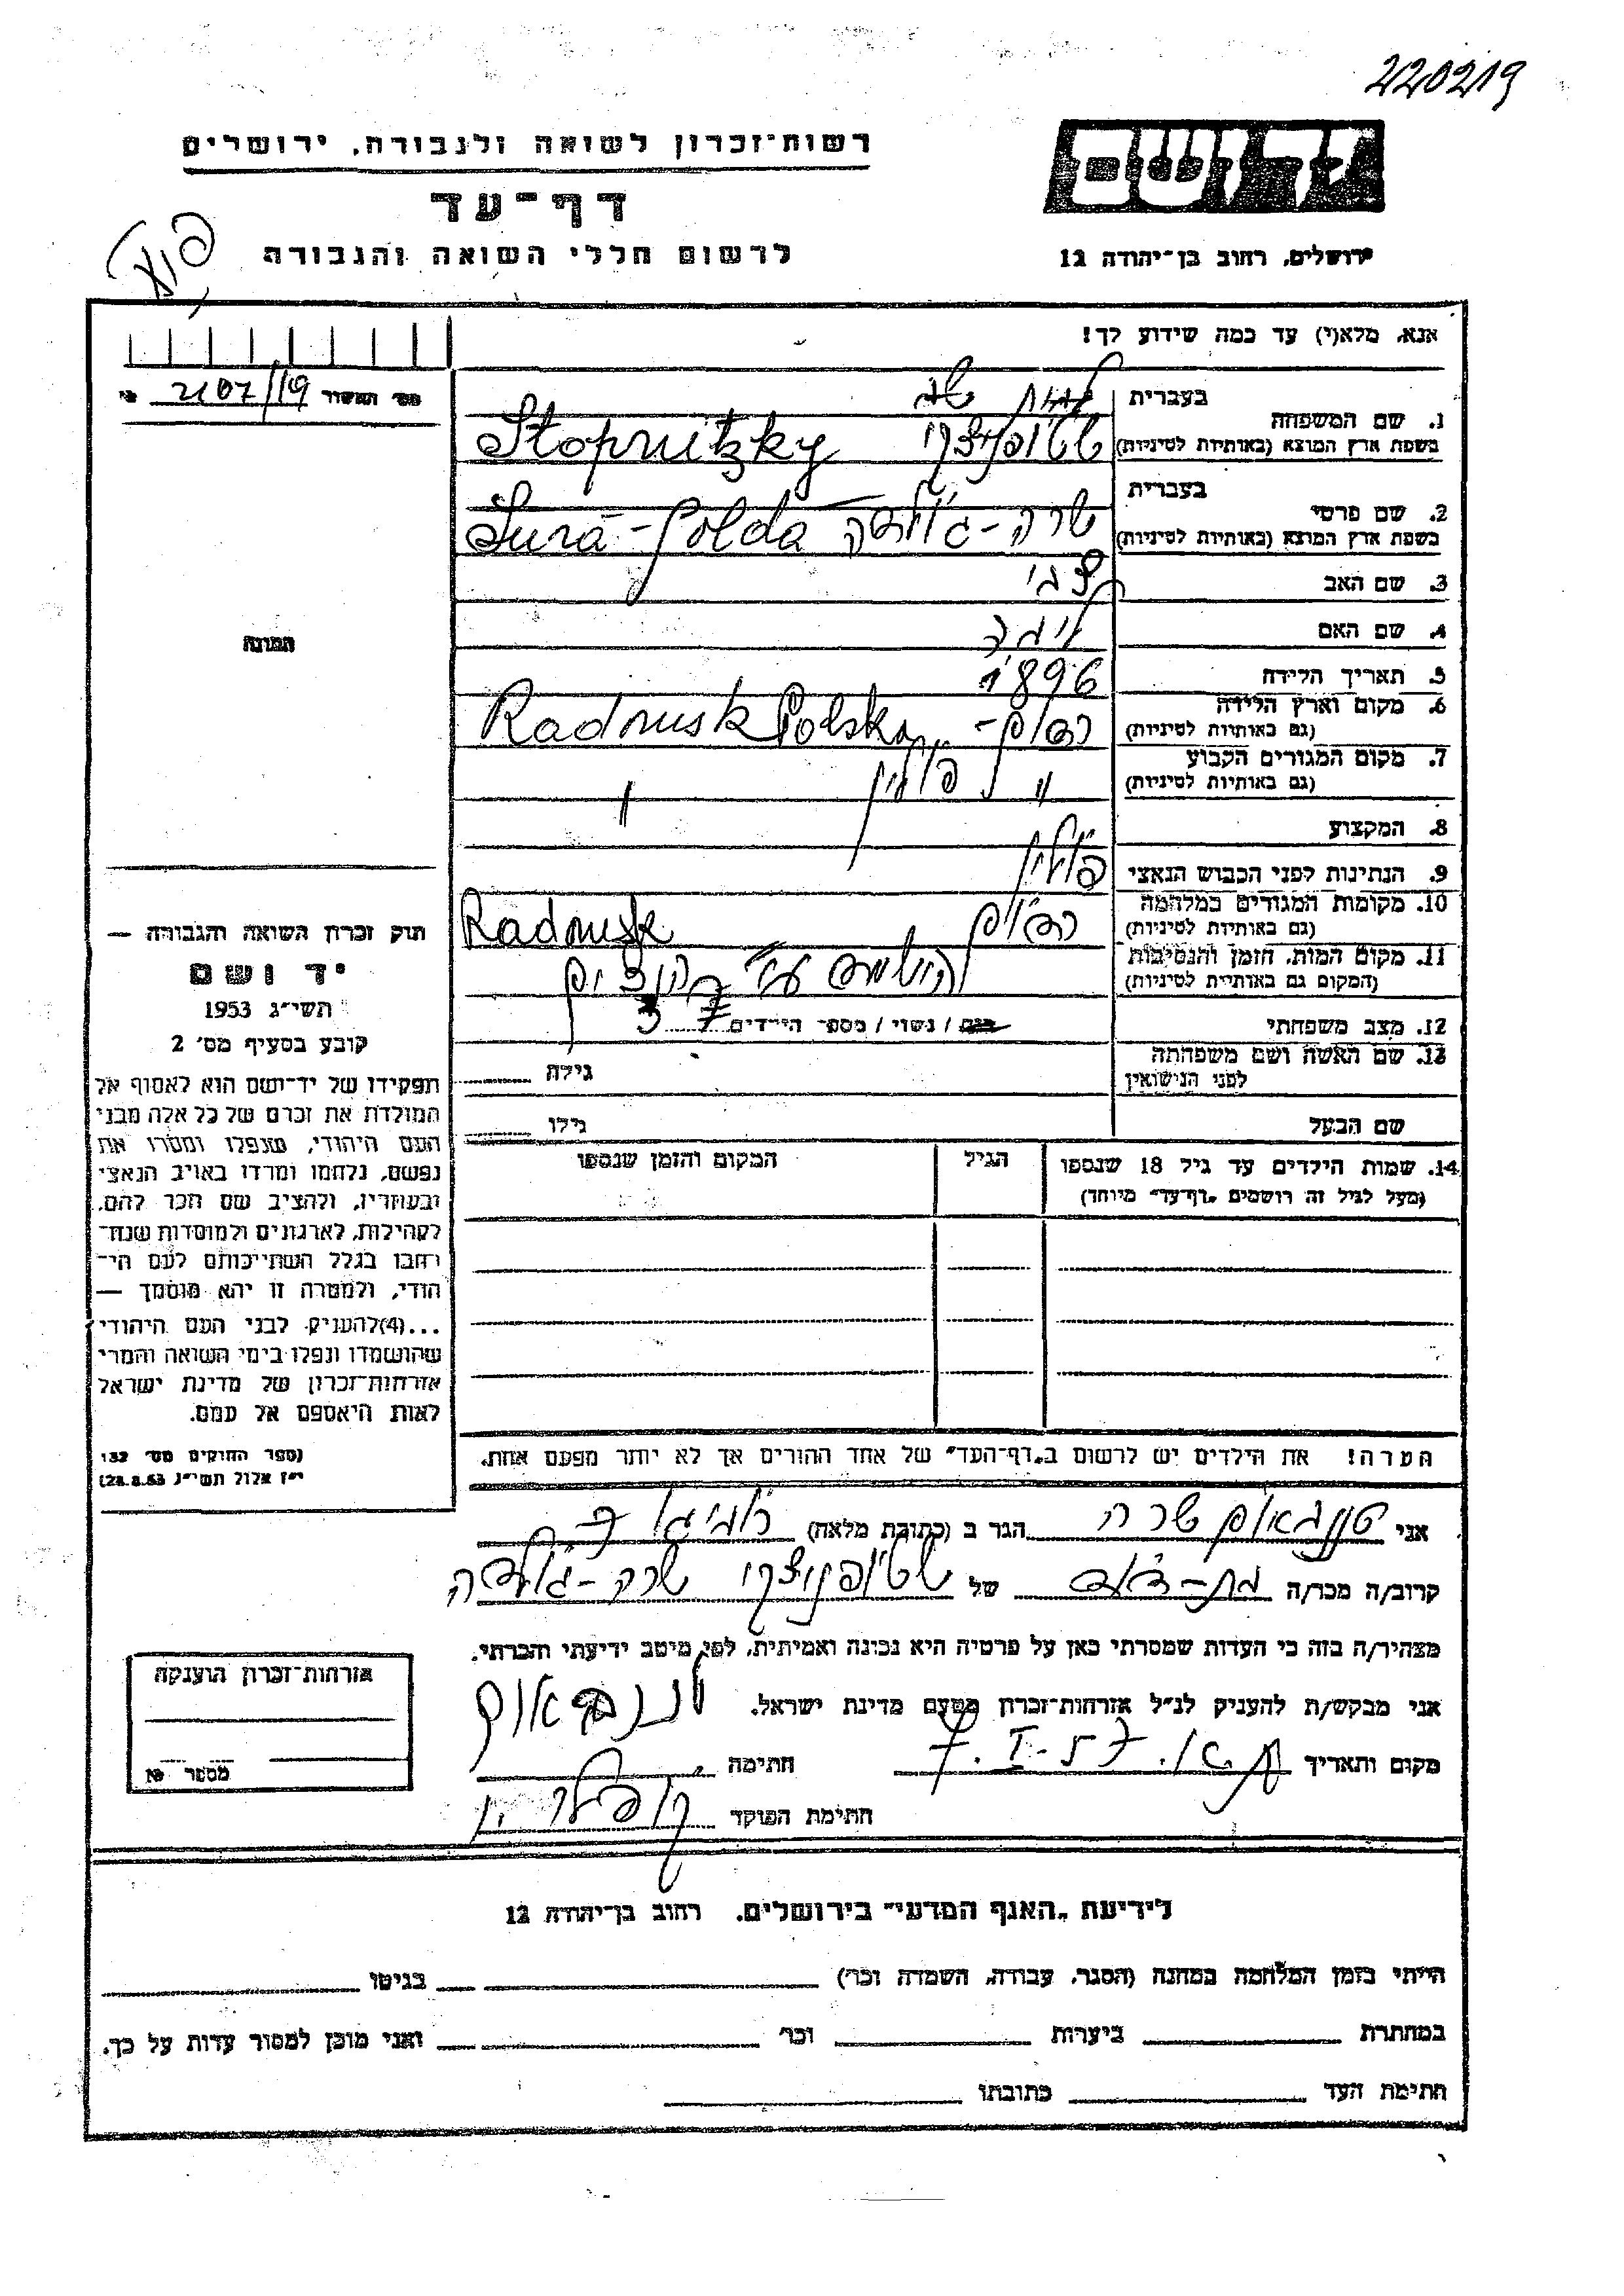 220219
רשות־זכרון לשואה ולגבורה, ירושלים
דף־עד
לרשום חללי השואה והגבורה
יד ושם
ירושלים, רחוב בן־יהודה 12
אנא, מלא(י) עד כמה שידוע לך!
מס׳ התעודה 2107/19
1. שם המשפחה בעברית
בשפת ארץ המוצא (באותיות לטיניות) שטופניצקי Stopnitzky
2. שם פרטי בעברית
בשפת ארץ המוצא (באותיות לטיניות) שרה-גולדה Sura-Golda
3. שם האב צבי
4. שם האם
5. תאריך הלידה 1896
6. מקום וארץ הלידה
(גם באותיות לטיניות) Radomsk Polska
7. מקום המגורים הקבוע
(גם באותיות לטיניות) " פולין "
8. המקצוע
9. הנתינות לפני הכבוש הנאצי פולין
10. מקומות המגורים במלחמה
(גם באותיות לטיניות) Radomsk
11. מקום המות, הזמן והנסיבות
(המקום גם באותיות לטיניות)
12. מצב משפחתי רווק / נשוי / מספר הילדים
13. שם האשה ושם משפחתה
לפני הנישואין גילה
שם הבעל גילו
14. שמות הילדים עד גיל 18 שנספו הגיל המקום והזמן שנספו
(מעל לגיל זה רושמים „דף־עד״ מיוחד)
התמונה
חוק זכרון השואה והגבורה —
יד ושם
תשי״ג 1953
קובע בסעיף מס׳ 2
תפקידו של יד־ושם הוא לאסוף אל
המולדת את זכרם של כל אלה מבני
העם היהודי, שנפלו ומסרו את
נפשם, נלחמו ומרדו באויב הנאצי
ובעוזריו, ולהציב שם וזכר להם,
לקהילות, לארגונים ולמוסדות שנח־
רבו בגלל השתייכותם לעם הי־
הודי, ולמטרה זו יהא מוסמך —
...(4)להעניק לבני העם היהודי
שהושמדו ונפלו בימי השואה והמרי
אזרחות־זכרון של מדינת ישראל
לאות היאספם אל עמם.
(ספר החוקים מס׳ 132
י״ז אלול תשי״ג 28.8.53)
הערה! את הילדים יש לרשום ב„דף־העד״ של אחד ההורים אך לא יותר מפעם אחת.
אני שרה הגר ב (כתובת מלאה)
קרוב/ה מכר/ה בת-דוד של שטופניצקי שרה-גולדה
מצהיר/ה בזה כי העדות שמסרתי כאן על פרטיה היא נכונה ואמיתית, לפי מיטב ידיעתי והכרתי.
אני מבקש/ת להעניק לנ״ל אזרחות־זכרון מטעם מדינת ישראל.
מקום ותאריך 7.I.57 חתימה
חתימת הפוקד
אזרחות־זכרון הוענקה
מספר №
לידיעת „האגף המדעי״ בירושלים, רחוב בן־יהודה 12
הייתי בזמן המלחמה במחנה (הסגר, עבודה, השמדה וכו׳) בגיטו
במחתרת ביערות וכו׳ ואני מוכן למסור עדות על כך.
חתימת העד כתובתו